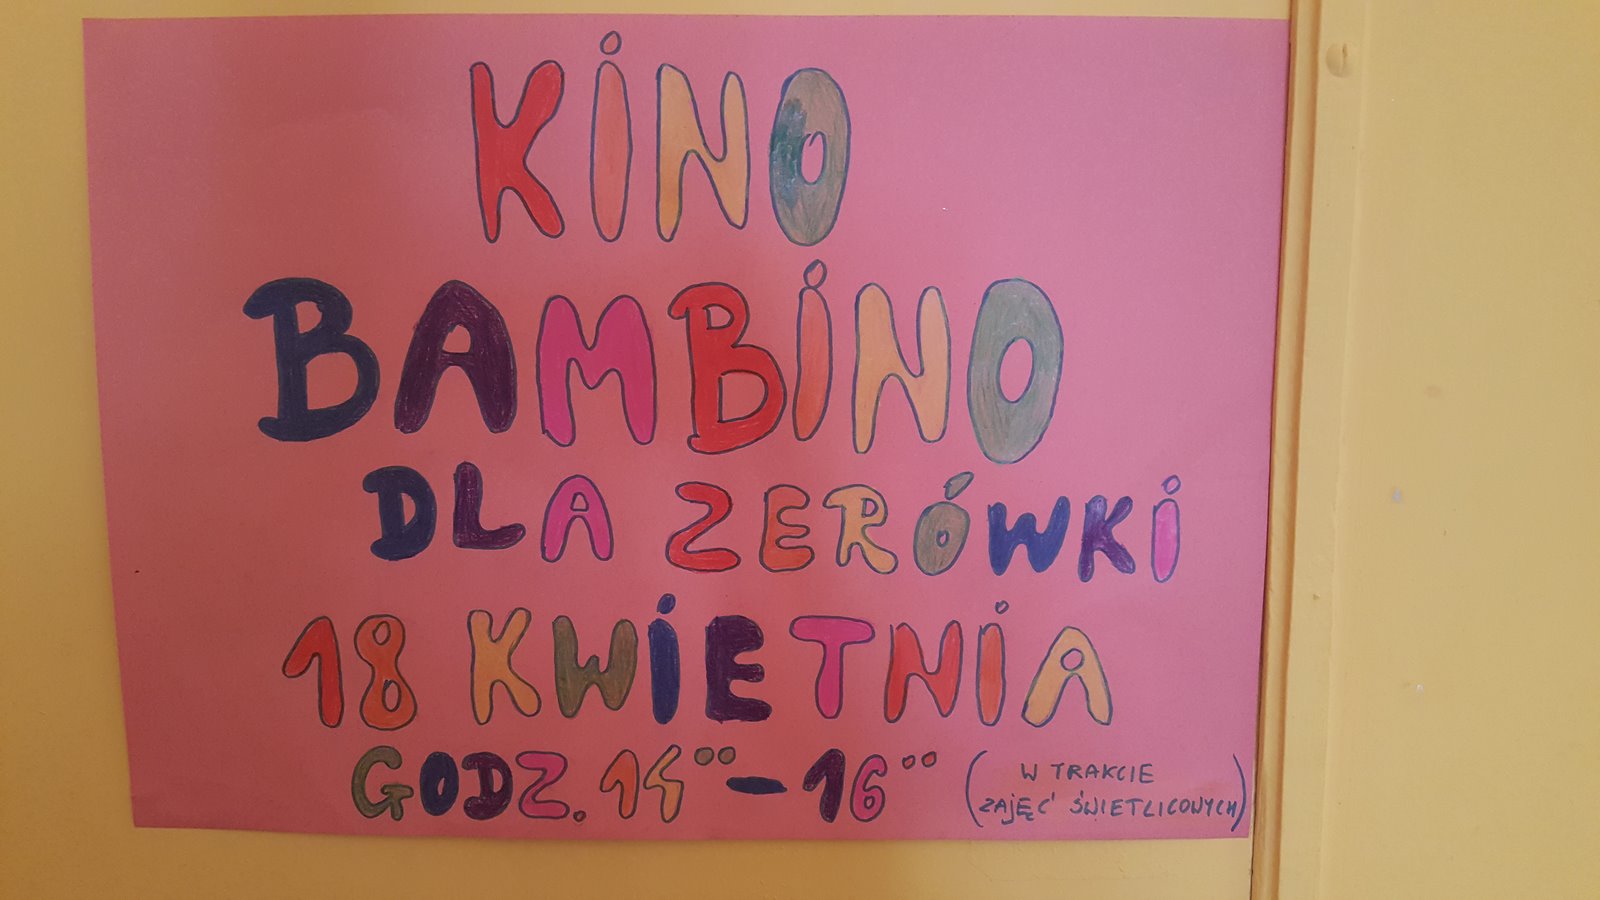 KiNO
BAMBiNO
DLA ZERÓWKi
18 KWiETNiA
GODZ. 14°° - 16°° (W TRAKCIE
ZAJĘĆ ŚWIETLICOWYCH)